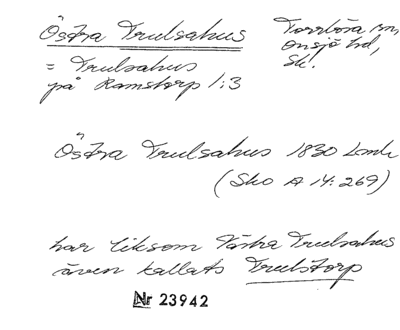 Östra Trulsahus
Torrlösa sn,
Onsjö hd,
Sk.
= Trulsahus
på Ramstorp 1:3
Östra Trulsahus 1830 Lmh
(Sko A 14:269)
har liksom Västra Trulsahus
även kallats Trulstorp
Nr 23942